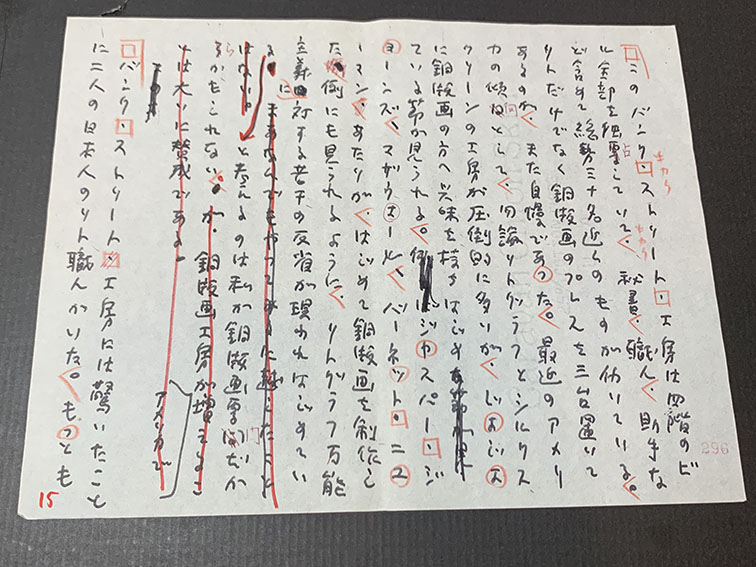 このバンク・ストリート・工房は四階のビ
ル全部を独占していて、秘書、職人、助手な
ど含めて総勢三十名近くのものが働いている。
リトだけでなく銅版画のプレスを三台置いて
あるのが、また自慢であった。最近のアメリ
カの傾向として、勿論リトグラフとシルクス
クリーンの工房が圧倒的に多いが、じょじょ
に銅版画の方へ興味を持ちはじめ
ている節が見られる。ジャスパー・ジ
ョーンズ、マザウェール、バーネット・ニュ
ーマン、あたりが、はじめて銅版画を制作し
た例にも見られるように、リトグラフ万能
主義に対する若干の反省が現われはじめてい
る。まあなんでもやってみるに越したこと
はない。と考えるのは私が銅版画専門だか
らかもしれない。が、銅版画工房が増えるこ
とは大いに賛成である。
アメリカで
バンク・ストリート・工房には驚いたこと
に二人の日本人のリト職人がいた。もっとも
15
296